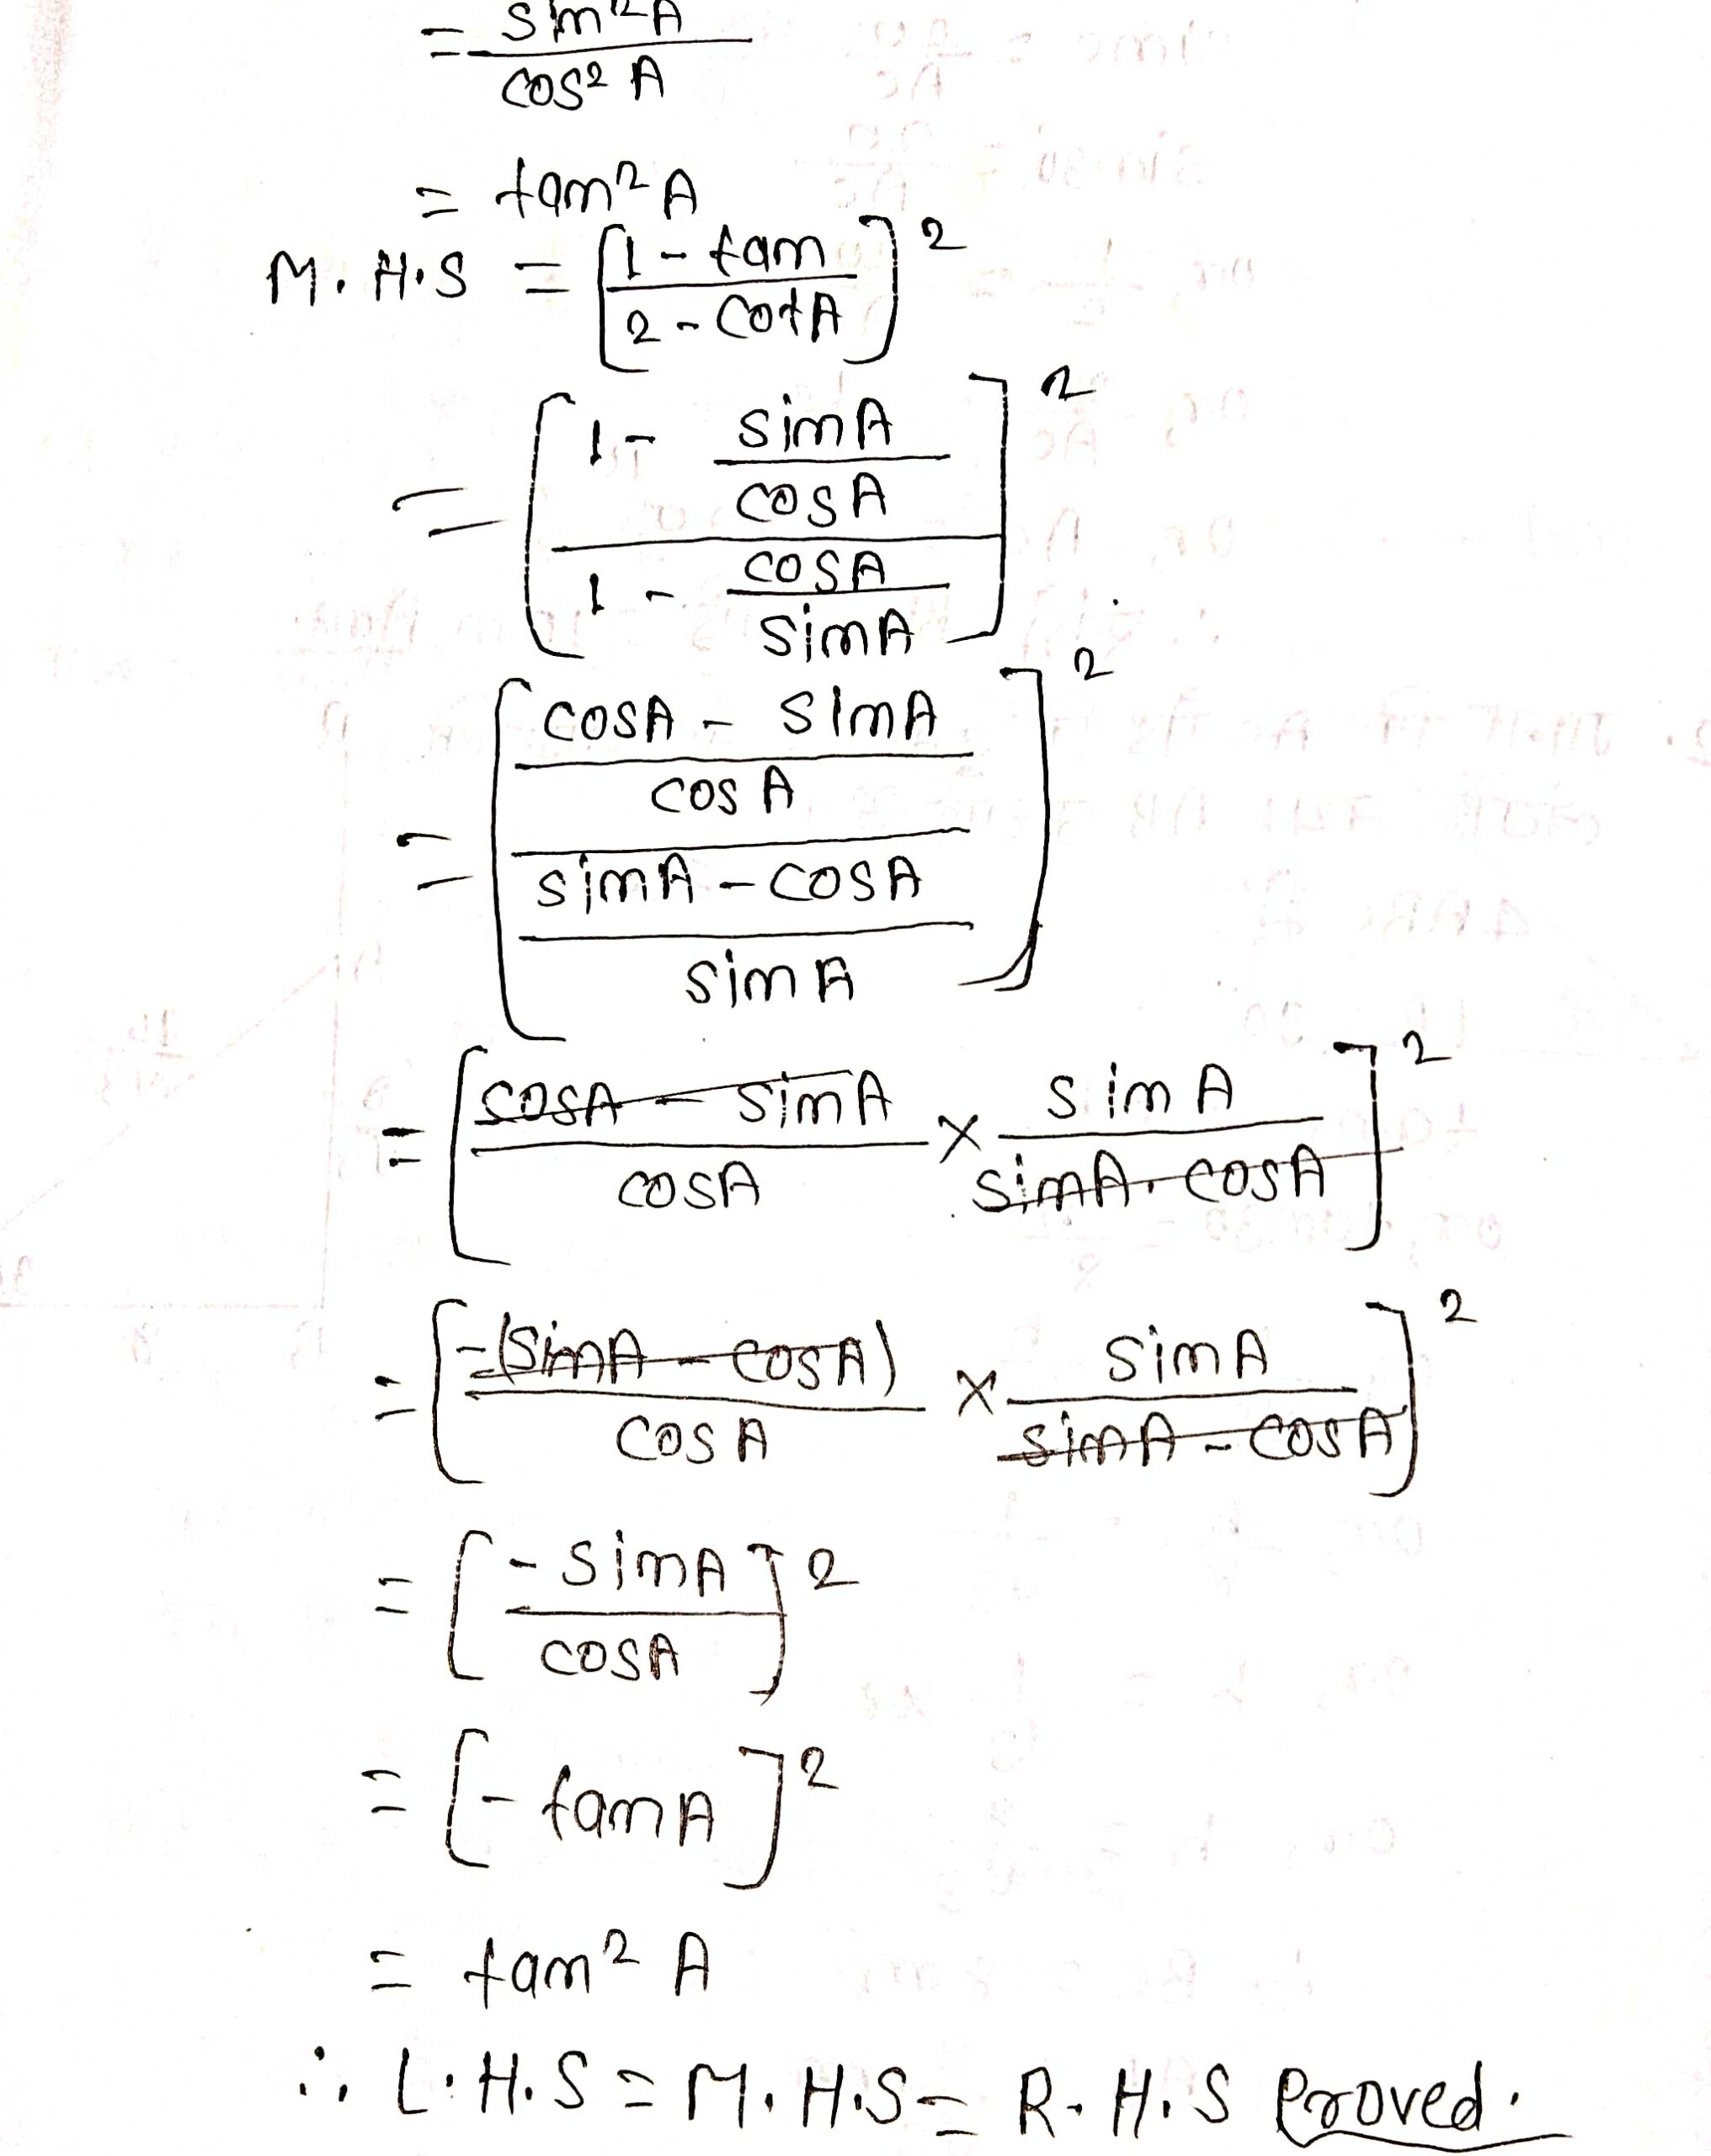 = sin²A / cos² A
= tan² A
M.H.S = [1 - tan / 2 - cotA]²
= [1 - sinA/cosA / 1 - cosA/sinA]²
= [cosA - sinA / cosA / sinA - cosA / sinA]²
= [cosA - sinA / cosA × sinA / sinA - cosA]²
= [-(sinA - cosA) / cosA × sinA / sinA - cosA]²
= [- sinA / cosA]²
= [- tanA]²
= tan² A
∴ L.H.S = M.H.S = R.H.S Proved.